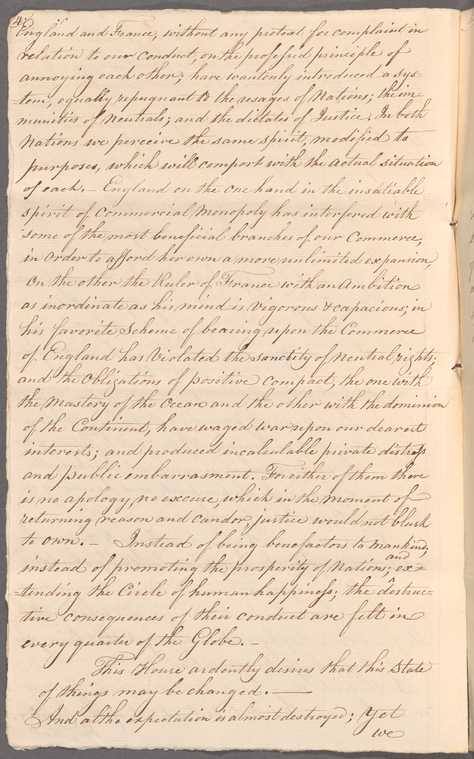 4
England and France, without any pretext for complaint in
relation to our conduct, on the professed principle of
annoying each other; have wantonly introduced a sys=
=tem, equally repugnant to the usages of Nations; the im=
munities of Neutrals; and the dictates of Justice. In both
Nations we perceive the same spirit, modified to
purposes, which will comport with the actual situation
of each. – England on the one hand in the insatiable
spirit of Commercial Monopoly has interfered with
some of the most beneficial branches of our Commerce,
in order to afford her own a more unlimited expansion,
On the other the Ruler of France with an Ambition
as inordinate as his mind is vigorous & capacious; in
his favorite Scheme of bearing upon the Commerce
of England has violated the sanctity of Neutral rights;
and the Obligations of positive compact, the one with
the Mastery of the Ocean and the other with the dominion
of the Continent, have waged war upon our dearest
interests; and produced incalculable private distress
and public embarrasment. For either of them there
is no apology, no excuse, which in the moment of
returning reason and candor, justice would not blush
to own. – Instead of being benefactors to mankind,
instead of promoting the prosperity of Nations; and ex=
=tending the Circle of human happiness; the destruc=
tive consequences of their conduct are felt in
every quarter of the Globe. –
This House ardently desires that this State
of things may be changed. —
And altho expectation is almost destroyed; Yet
we